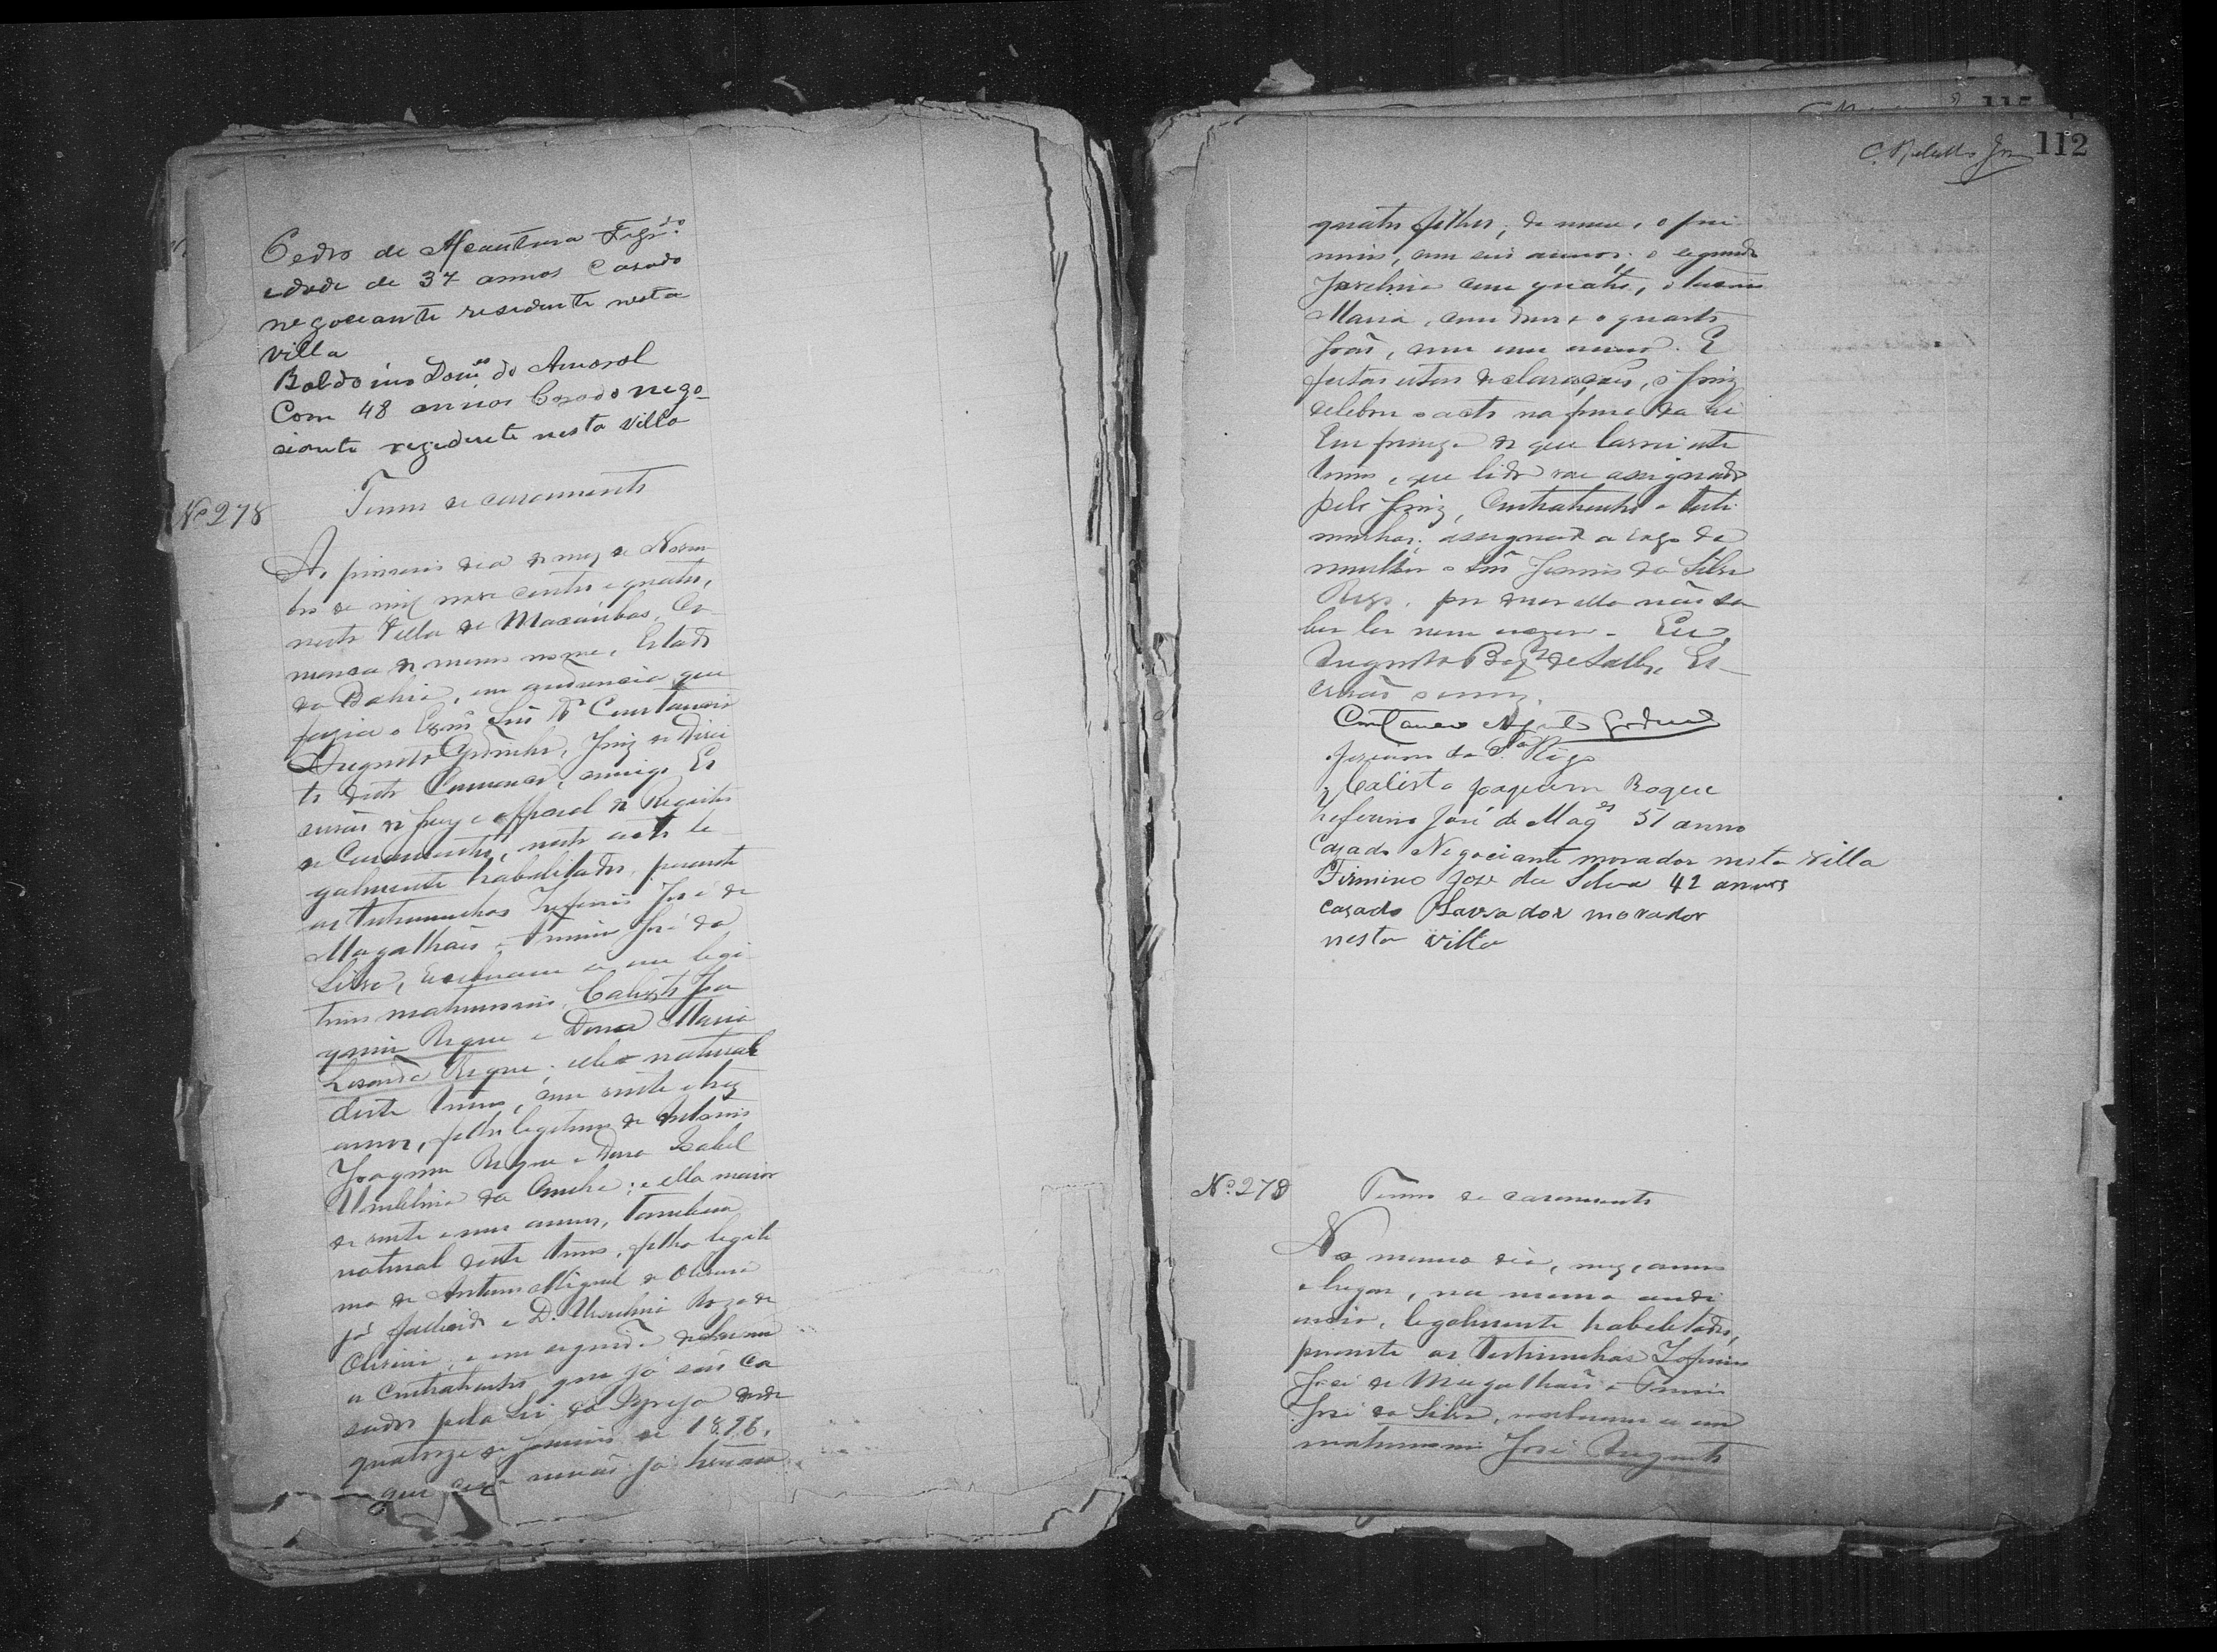 Pedro de Alcantara Figdo
edade de 37 annos Casado
negoceante residente nesta
villa
Baldoino Domes do Amaral
Com 48 annos Casado nego-
ciante rezidente nesta villa
No 278
Termo de casamento
Ao primeiro dia do mez de Novem
bro de mil nove centos e quatro,
nesta Villa de Macaúbas, Co
marca do mesmo nome, Estado
da Bahia, em audiencia que
fazia o Exmo Snr Dr Constancio
Augusto Godinho, Juiz de Direi
to desta Comarca, comigo Es
crivão de paz e official do Registro
de Casamentos, neste acto le
galmente habilitados, perante
as testemunhas Zeferino José de
Magalhães e Firmino José da
Silva, receberam-se em legi
timo matrimonio, Calisto Joa
quim Roque e Dona Maria
Roque; elle natural
deste termo, com vinte e trez
annos, filho legitimo de Antonio
Joaquim Roque e Dona Isabel
Umbelina da Cunha; e ella maior
de vinte e um annos, tambem
natural deste termo, filha legiti
ma de Antonio Miguel de Oliveira
já fallecido e D. Umbelina Roza de
Oliveira, e em seguida declararam
os Contrahentes que já são ca
sados pela Lei da Igreja desde
quatorze de Janeiro de 1898,
que dessa união já tiveram
112
quatro filhos, de nome, o pri
meiro, com seis annos; o segundo
Jovelina com quatro, o terceiro
Maria, com dous e o quarto
João, com um anno. E
feitas estas declarações, o Juiz
celebrou o acto na forma da lei
Em firmeza do que lavrei este
termo, que lido vae assignado
pelo Juiz, Contrahentes e teste
munhas; assignando a rogo da
mulher o Snr Jeronimo da Silva
Rego, por dizer ella não sa
ber ler nem escrever. Eu,
Augusto de Salles, Es-
crivão o escrevi.
Constancio Augusto Godinho
da Sa Rego
Calisto Joaquim Roque
Zeferino José de Mages 51 anno
Cazado Negociante morador nesta villa
Firmino José da Silva 42 annos
cazado Lavrador morador
nesta villa
No. 279
Termo de casamento
No mesmo dia, mez, anno
e lugar, na mesma audi
encia, legalmente habilitados,
perante as testemunhas Zeferino
José de Magalhães e Firmino
José da Silva, receberam-se em
matrimonio José Augusto